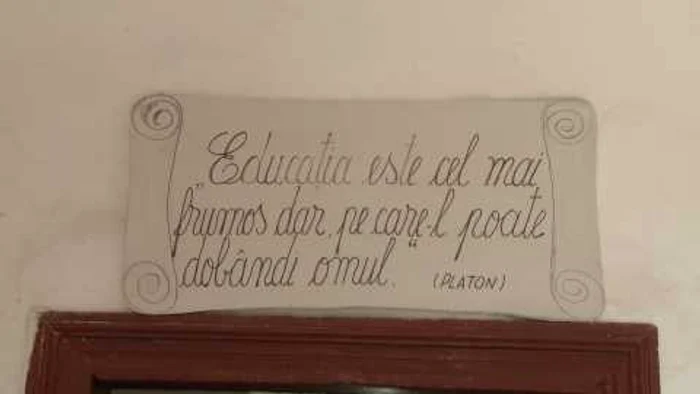 „Educația este cel mai
frumos dar, pe care-l poate
dobândi omul.“ (PLATON)